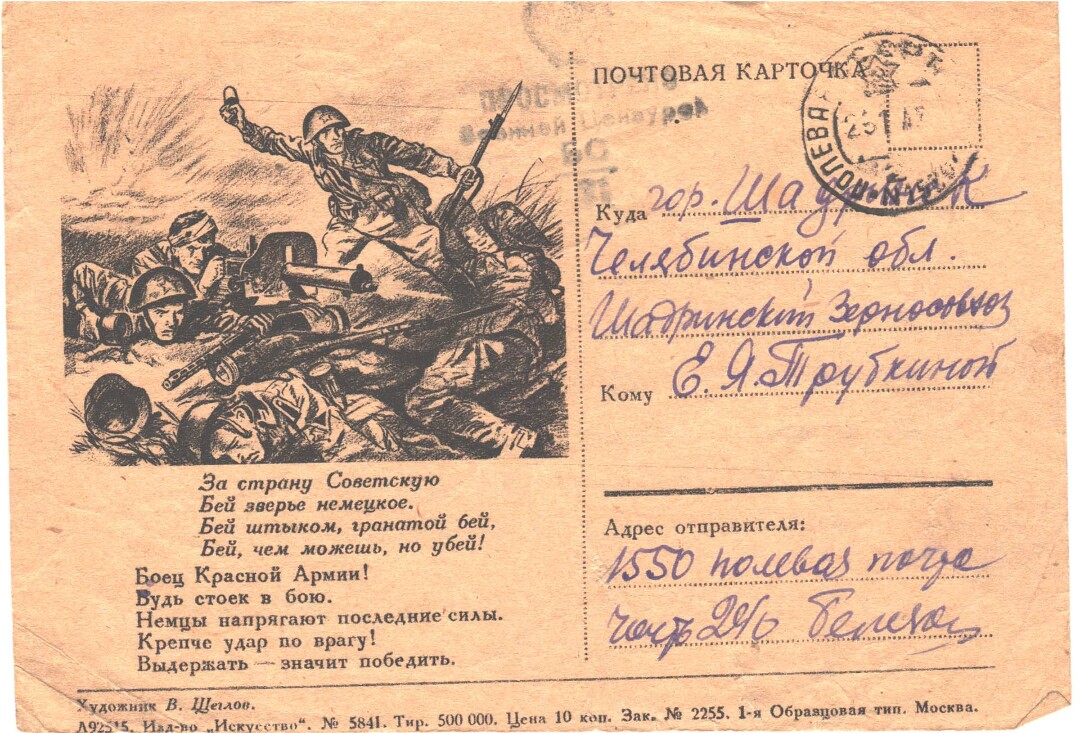 ПОЧТОВАЯ КАРТОЧКА
Просмотрено
Военной Цензурой
ПОЛЕВАЯ
Куда гор. Шадринск
Челябинской обл.
Шадринский Зерносовхоз
Кому Е. Я. Трубкиной
Адрес отправителя:
1550 полевая почта
часть
За страну Советскую
Бей зверье немецкое.
Бей штыком, гранатой бей,
Бей, чем можешь, но убей!
Боец Красной Армии!
Будь стоек в бою.
Немцы напрягают последние силы.
Крепче удар по врагу!
Выдержать — значит победить.
Художник В. Щеглов.
А92515. Изд-во „Искусство“. № 5841. Тир. 500 000. Цена 10 коп. Зак. № 2255. 1-я Образцовая тип. Москва.